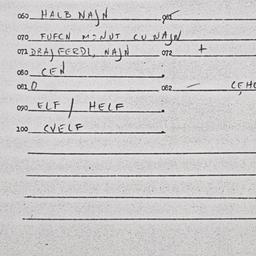 060 HALB NAJN 061 —
070 FUFCN MINUT CU NAJN
071 DRAJ FERDL, NAJN 072 +
080 CEN
081 0 082 — CEHC
090 ELF / HELF
100 CVELF